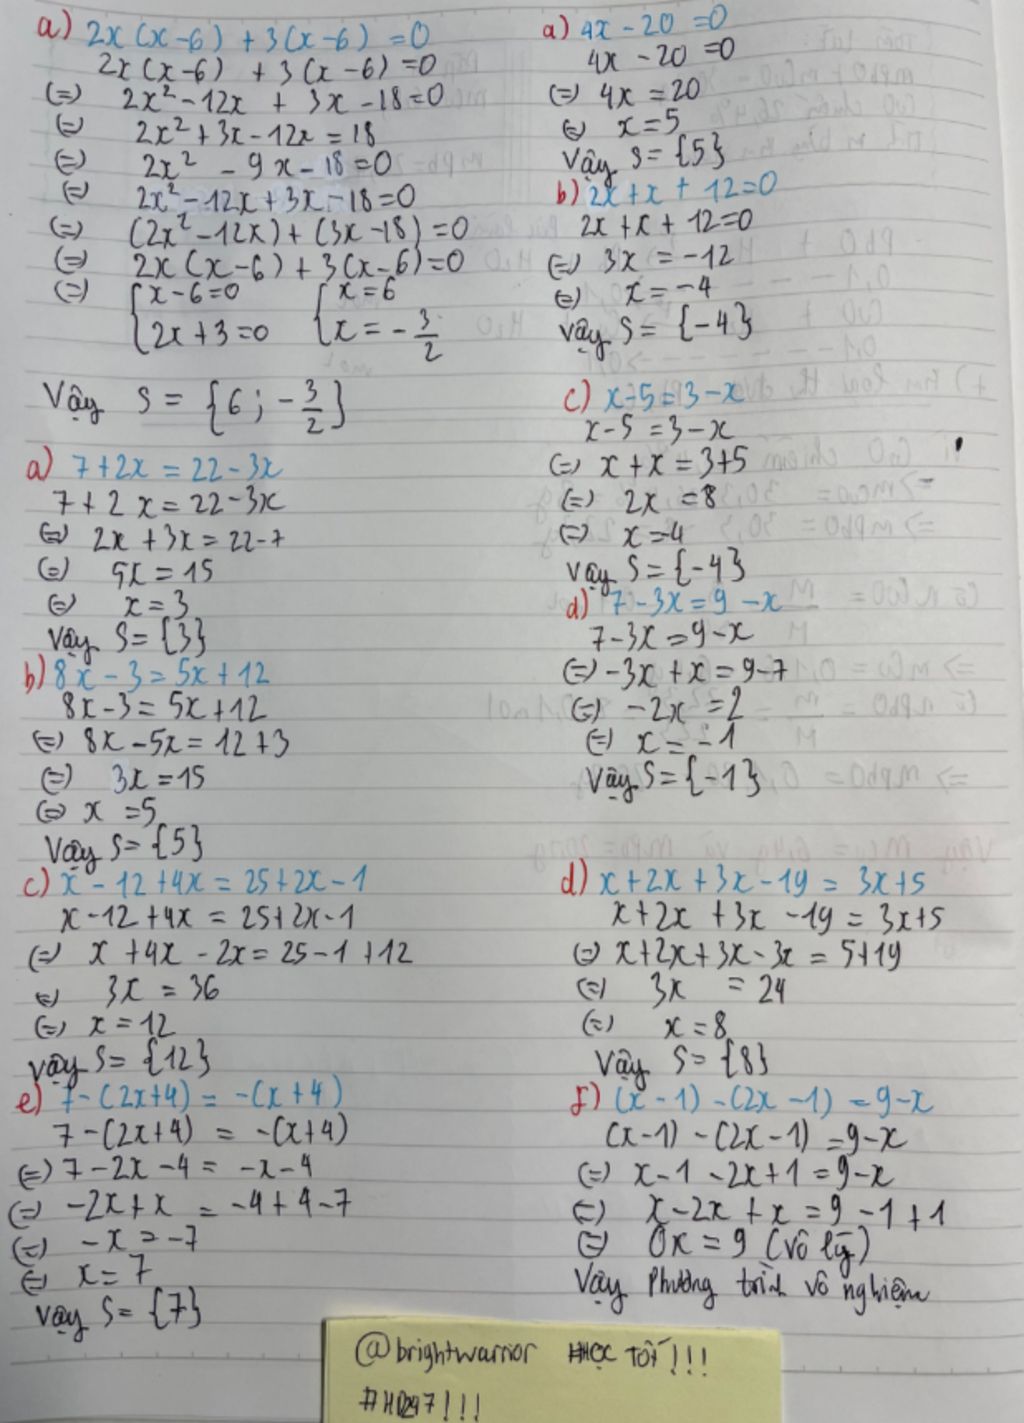 a) 2x(x-6) + 3(x-6) = 0
2x(x-6) + 3(x-6) = 0
(=) 2x² - 12x + 3x - 18 = 0
(=) 2x² + 3x - 12x = 18
(=) 2x² - 9x - 18 = 0
(=) 2x² - 12x + 3x - 18 = 0
(=) (2x² - 12x) + (3x - 18) = 0
(=) 2x(x-6) + 3(x-6) = 0
(=) { x - 6 = 0 { x = 6
{ 2x + 3 = 0 { x = -3/2
Vậy S = {6; -3/2}
a) 7 + 2x = 22 - 3x
7 + 2x = 22 - 3x
(=) 2x + 3x = 22 - 7
(=) 5x = 15
(=) x = 3
Vậy S = {3}
b) 8x - 3 = 5x + 12
8x - 3 = 5x + 12
(=) 8x - 5x = 12 + 3
(=) 3x = 15
(=) x = 5
Vậy S = {5}
c) x - 12 + 4x = 25 + 2x - 1
x - 12 + 4x = 25 + 2x - 1
(=) x + 4x - 2x = 25 - 1 + 12
(=) 3x = 36
(=) x = 12
Vậy S = {12}
e) 7 - (2x + 4) = -(x + 4)
7 - (2x + 4) = -(x + 4)
(=) 7 - 2x - 4 = -x - 4
(=) -2x + x = -4 + 4 - 7
(=) -x = -7
(=) x = 7
Vậy S = {7}
a) 4x - 20 = 0
4x - 20 = 0
(=) 4x = 20
(=) x = 5
Vậy S = {5}
b) 2x + x + 12 = 0
2x + x + 12 = 0
(=) 3x = -12
(=) x = -4
Vậy S = {-4}
c) x - 5 = 3 - x
x - 5 = 3 - x
(=) x + x = 3 + 5
(=) 2x = 8
(=) x = 4
Vậy S = {-4}
d) 7 - 3x = 9 - x
7 - 3x = 9 - x
(=) -3x + x = 9 - 7
(=) -2x = 2
(=) x = -1
Vậy S = {-1}
d) x + 2x + 3x - 19 = 3x + 5
x + 2x + 3x - 19 = 3x + 5
(=) x + 2x + 3x - 3x = 5 + 19
(=) 3x = 24
(=) x = 8
Vậy S = {8}
f) (x - 1) - (2x - 1) = 9 - x
(x - 1) - (2x - 1) = 9 - x
(=) x - 1 - 2x + 1 = 9 - x
(=) x - 2x + x = 9 - 1 + 1
(=) 0x = 9 (vô lý)
Vậy phương trình vô nghiệm
@brightwarrior HỌC TỐT!!!
#HD247!!!